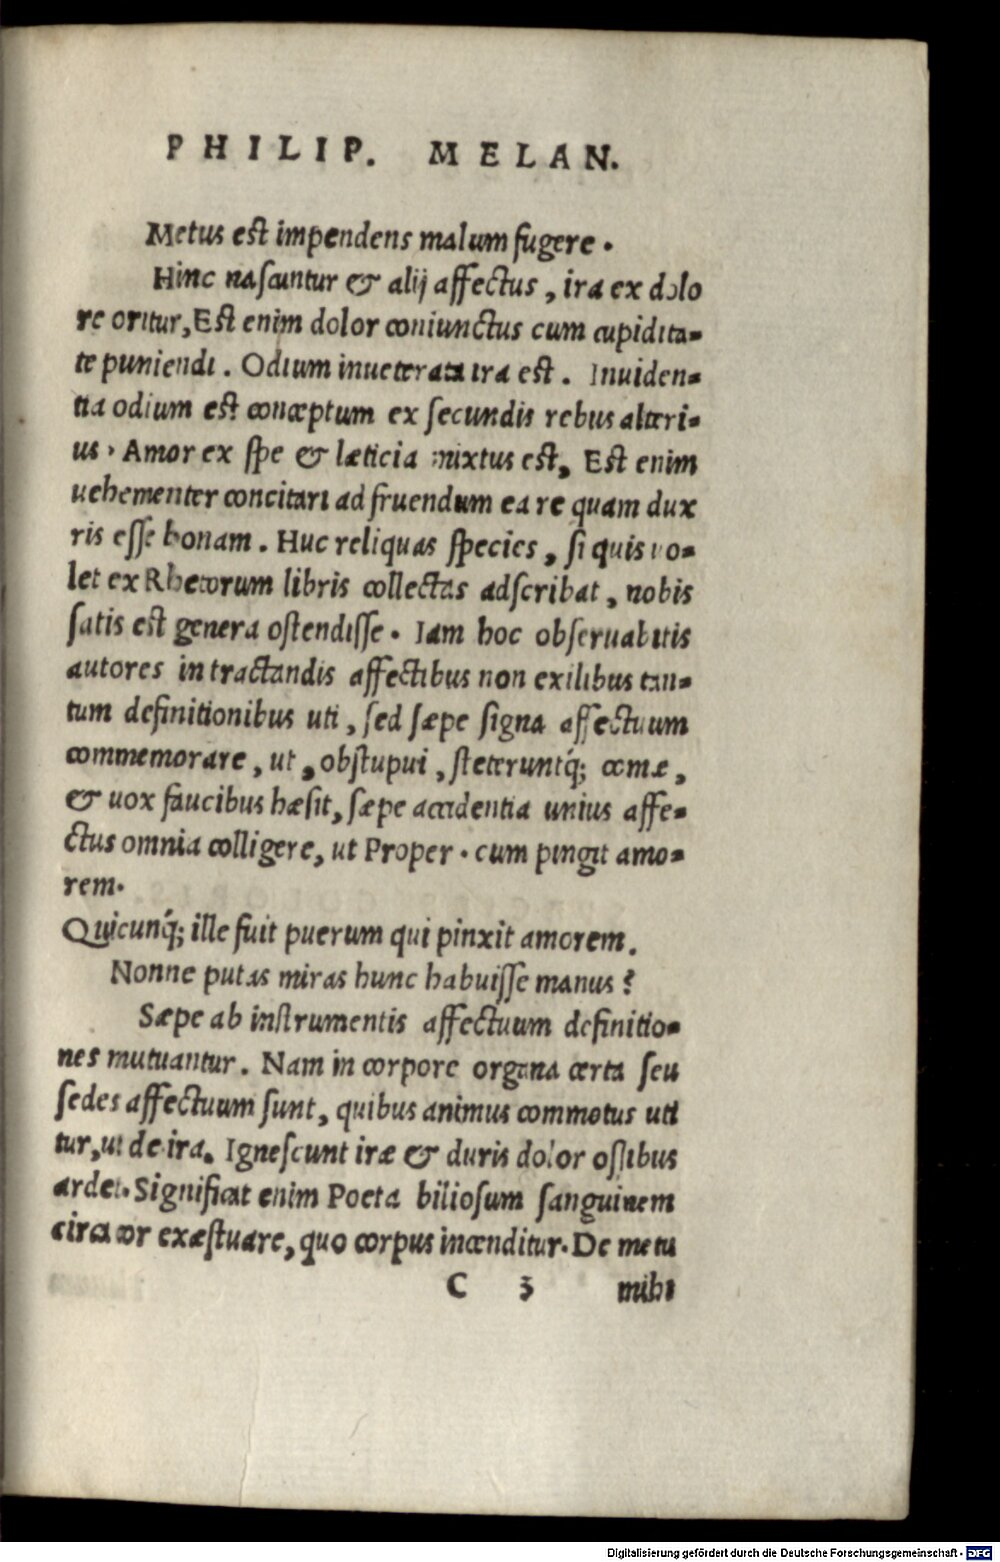 PHILIP. MELAN.
Metus est impendens malum fugere.
Hinc nascuntur & alij affectus, ira ex dolo
re oritur, Est enim dolor coniunctus cum cupidita-
te puniendi. Odium inueterata ira est. Inuiden-
tia odium est conceptum ex secundis rebus alteri-
us. Amor ex spe & læticia mixtus est, Est enim
uehementer concitari ad fruendum ea re quam dux
ris esse bonam. Huc reliquas species, si quis uo-
let ex Rhetorum libris collectas adscribat, nobis
satis est genera ostendisse. Iam hoc obseruabitis
autores in tractandis affectibus non exilibus tan-
tum definitionibus uti, sed sæpe signa affectuum
commemorare, ut, obstupui, steteruntq́; comæ,
& uox faucibus hæsit, sæpe accidentia unius affe-
ctus omnia colligere, ut Proper. cum pingit amo-
rem.
Quicunq́; ille fuit puerum qui pinxit amorem.
Nonne putas miras hunc habuisse manus?
Sæpe ab instrumentis affectuum definitio-
nes mutuantur. Nam in corpore organa certa seu
sedes affectuum sunt, quibus animus commotus uti
tur, ut de ira. Ignescunt iræ & duris dolor ossibus
ardet. Significat enim Poeta biliosum sanguinem
circa cor exæstuare, quo corpus incenditur. De metu
C 3 mihi
Digitalisierung gefördert durch die Deutsche Forschungsgemeinschaft - DFG